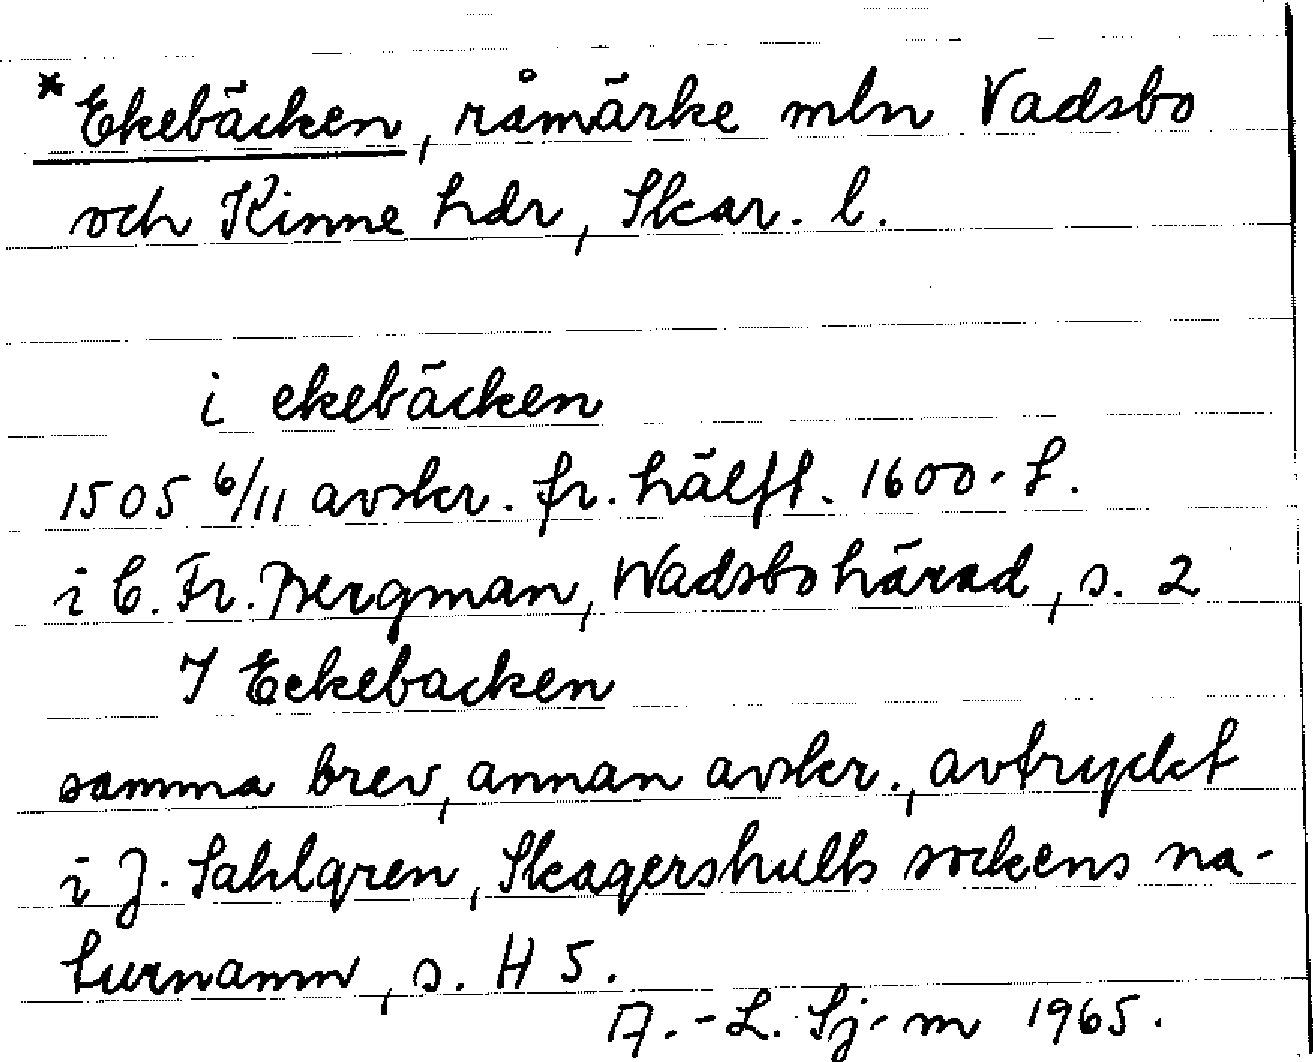 *Ekebäcken, råmärke mln Vadsbo
och Kinne hdr, Skar. l.
i ekebäcken
1505 6/11 avskr. fr. hälft. 1600-t.
i C. Fr. Bergman, Wadsbo härad, s. 2
I Eckebacken
samma brev, annan avskr., avtryckt
i J. Sahlgren, Skagershults sockens na-
turnamn, s. H 5.
A.-L. Sj-m 1965.